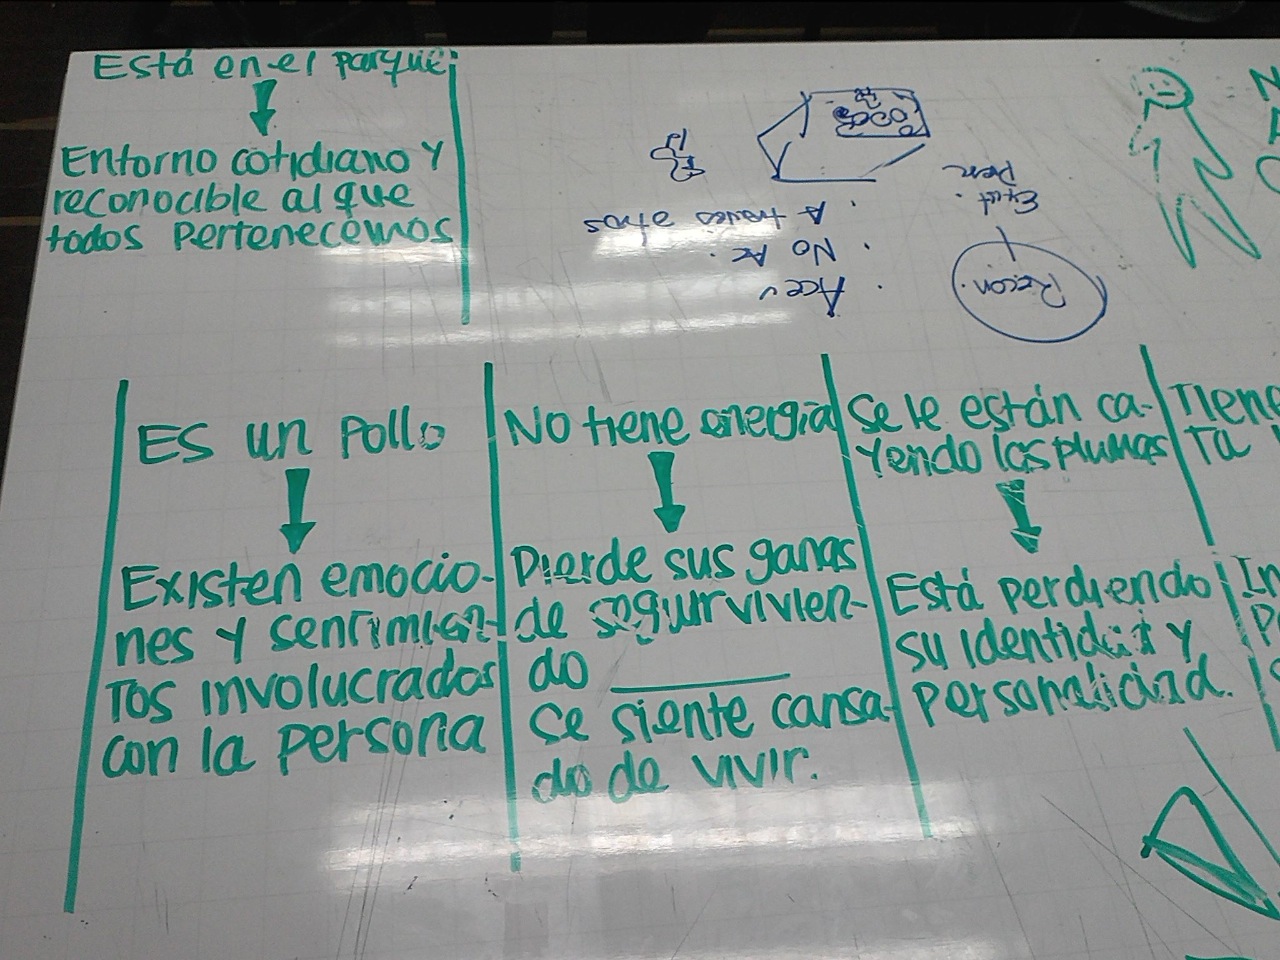 Está en el parque
Entorno cotidiano y
reconocible al que
todos pertenecemos
A través otros
No Ac.
Recon.
Es un pollo
Existen emocio-
nes y sentimien-
tos involucrados
con la persona
No tiene energía
Pierde sus ganas
de seguir vivien-
do
Se siente cansa-
do de vivir.
Se le están ca-
yendo las plumas
Está perdiendo
su identidad y
personalidad.